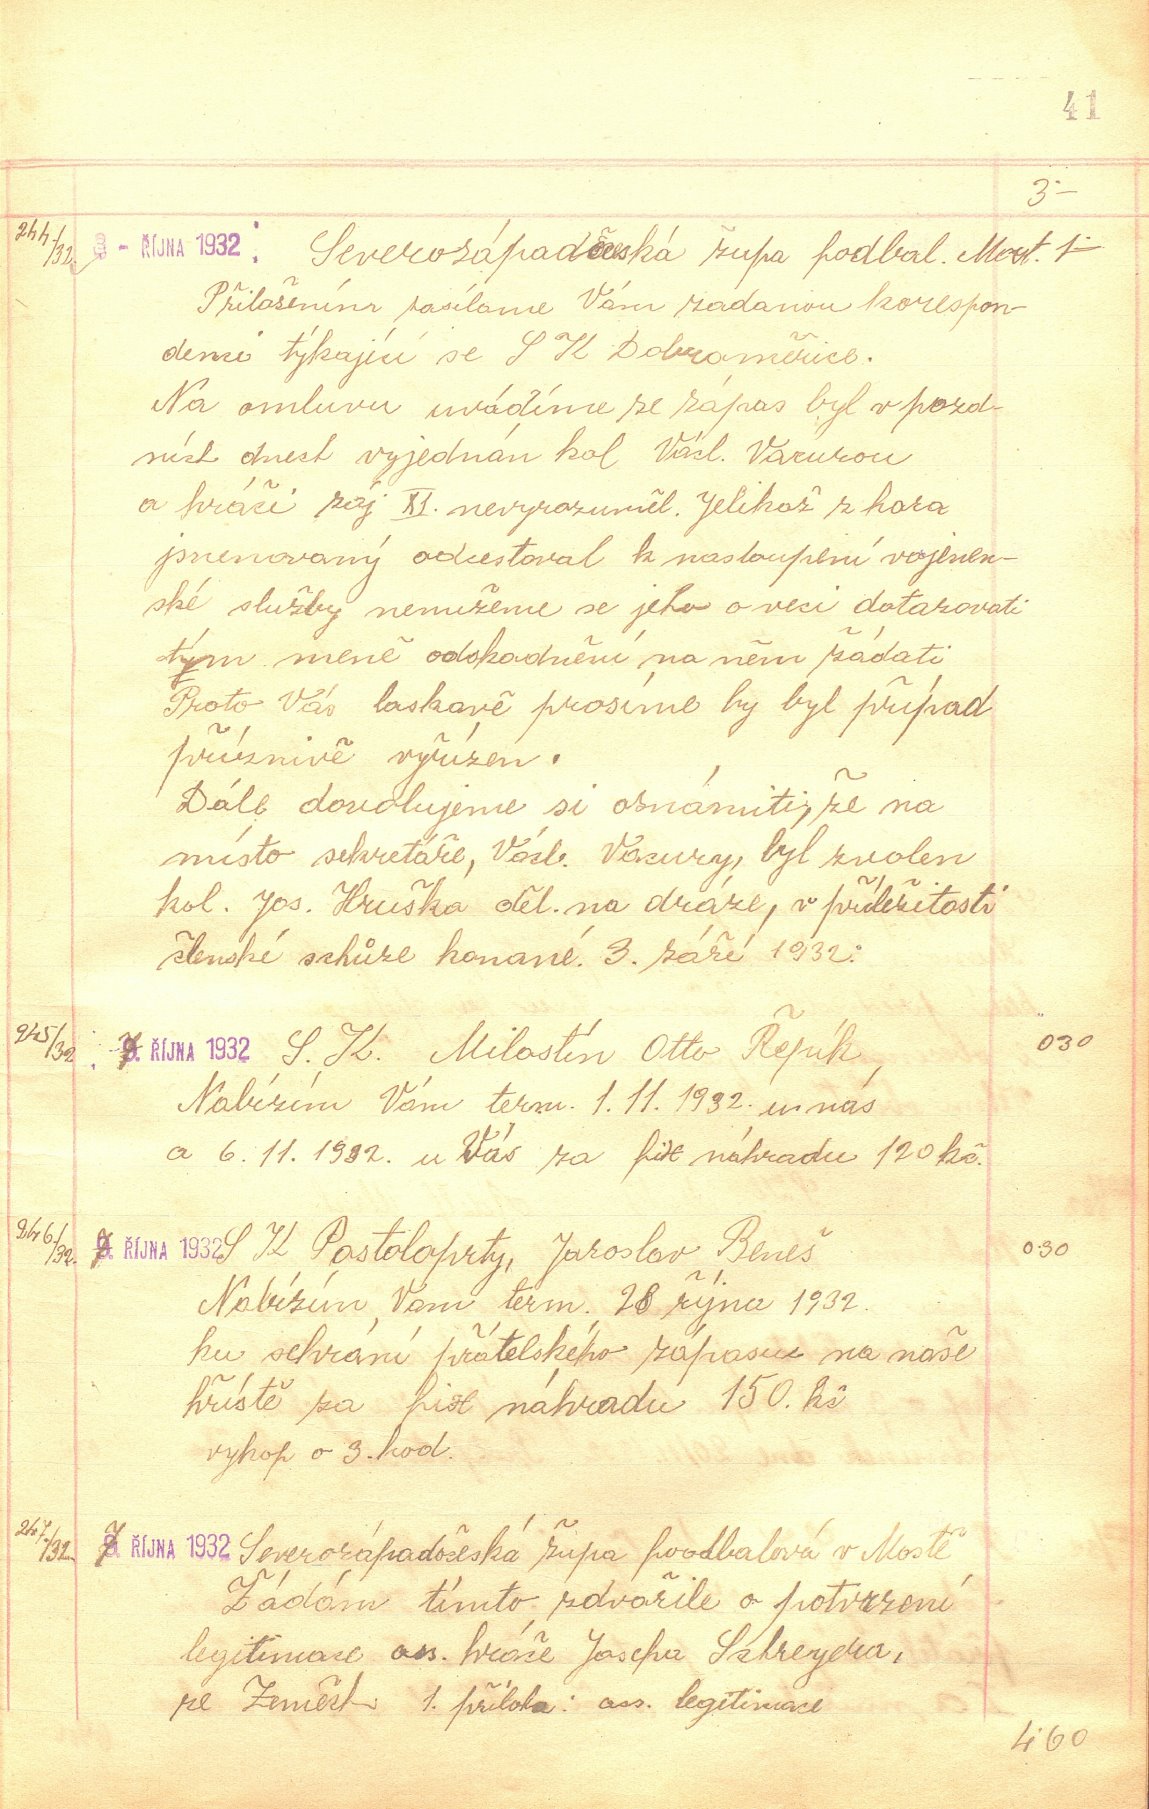 41
3·–
244/32. 3 - ŘÍJNA 1932 : Severozápadčeská župa podbal. Most. 1–
Přiloženínr zasílame Vám zadanou korespon-
denci týkající se S K Dobroměřice.
Na omluvu uvádíme ze zápas byl v pozd-
ních dnech vyjednán kol Václ. Vacurou
a hráči záj XI. nevyrozuměl. Jelikož z hora
jmenovaný odcestoval k nastoupení vojenen-
ské služby nemužeme se jeho o veci dotazovati
tým meně odškadnění na něm žádati
Proto Vás laskavě prosíme by byl případ
příznivě vyřízen.
Dále dovolujeme si oznámiti, že na
místo sekretáře, Václ. Vacury, byl zvolen
kol. Jos. Hruška děl. na dráze, v příležitosti
členské schůze konané. 3. září 1932.
245/32 7. ŘÍJNA 1932 S. K. Milostín Otto Řepík 030
Nabízím Vám term. 1. 11. 1932. u nás
a 6. 11. 1932. u Vás za fix náhradu 120 kč.
246/32. 7. ŘÍJNA 1932 S K Postoloprty, Jaroslav Beneš 030
Nabízím Vám term. 28 října 1932.
ku sehrání přátelského zápasu na naše
hřístě za fix náhradu 150. kč
vykop o 3. hod.
247/32 7. ŘÍJNA 1932 Severozápadočeská župa foodbalová v Mostě
Žádám tímto zdvořile o potvrzení
legitimace ass. hráče Josepa
ze Zeměch 1. příloha: ass. legitimace
460